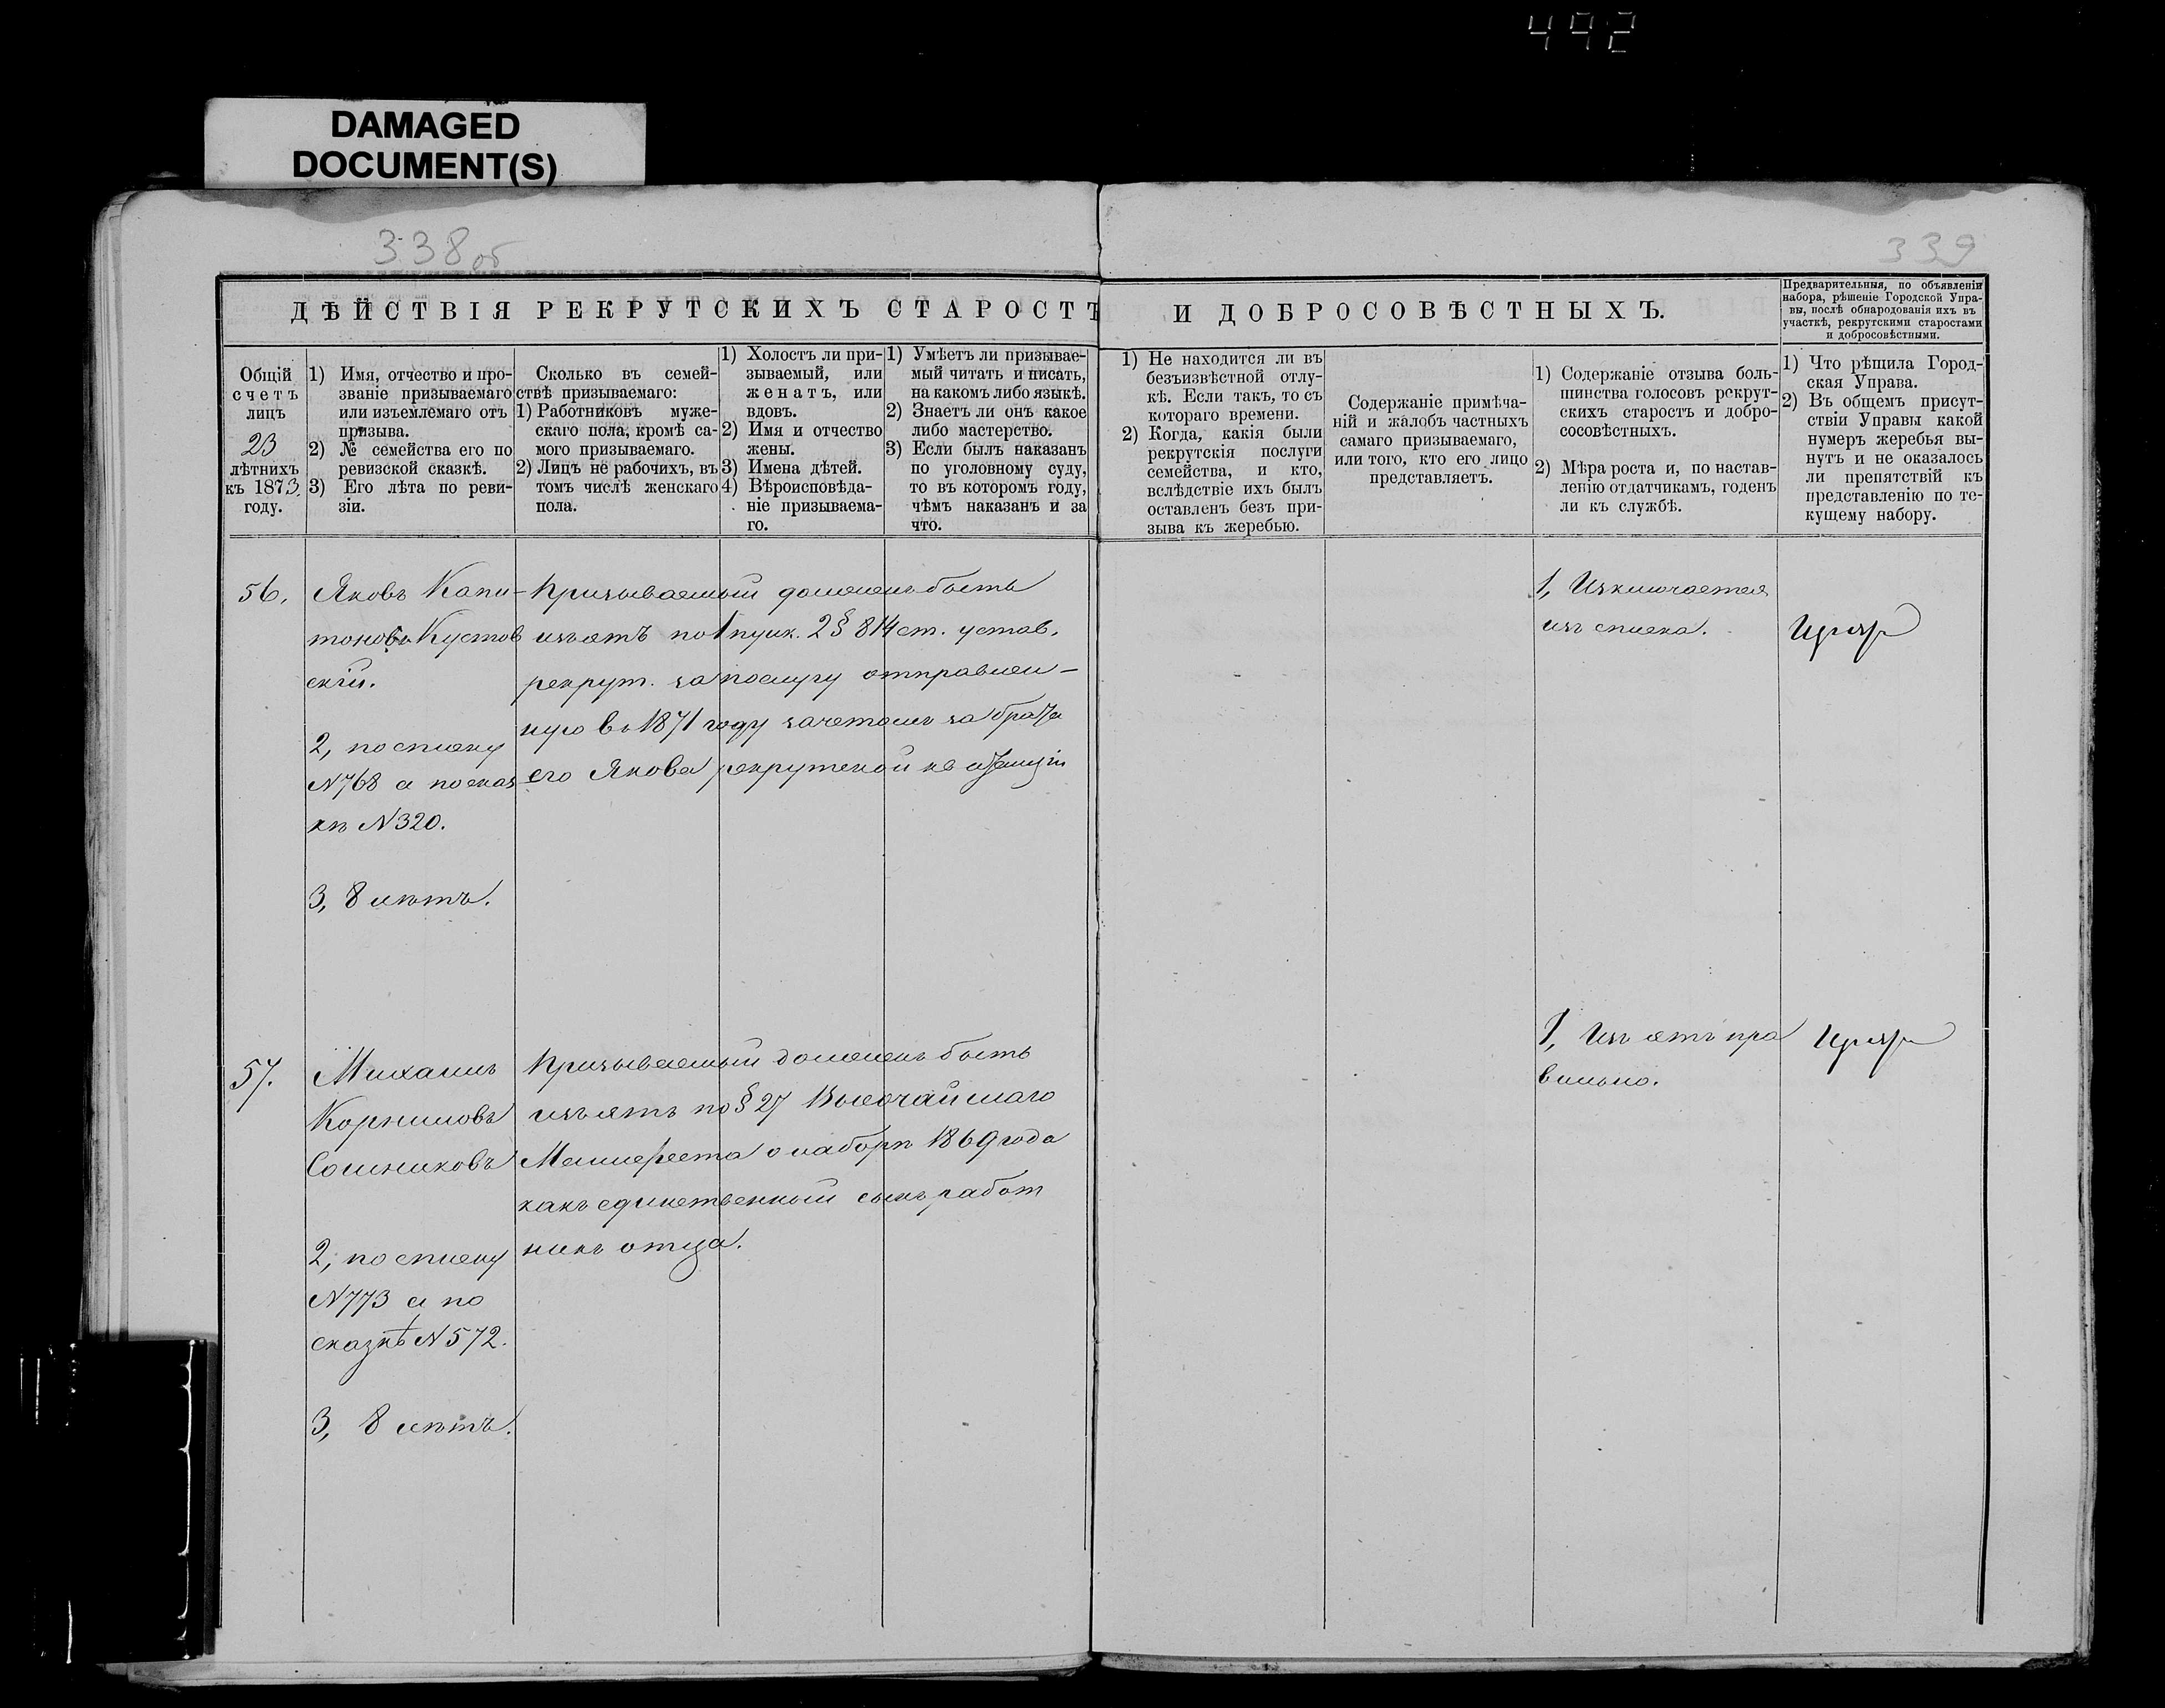 442
DAMAGED
DOCUMENT(S)
338об
339
ДѢЙСТВІЯ РЕКРУТСКИХЪ СТАРОСТЪ
И ДОБРОСОВѢСТНЫХЪ.
Предварительныя, по объявленіи
набора, рѣшеніе Городской Упра-
вы, послѣ обнародованія ихъ въ
участкѣ, рекрутскими старостами
и добросовѣстными.
Общій
счетъ
лицъ
23
лѣтнихъ
къ 1873
году.
1) Имя, отчество и про-
званіе призываемаго
или изъемлемаго отъ
призыва.
2) № семейства его по
ревизской сказкѣ.
3) Его лѣта по реви-
зіи.
Сколько въ семей-
ствѣ призываемаго:
1) Работниковъ муже-
скаго пола, кромѣ са-
мого призываемаго.
2) Лицъ не рабочихъ, въ
томъ числѣ женскаго
пола.
1) Холостъ ли при-
зываемый, или
женатъ, или
вдовъ.
2) Имя и отчество
жены.
3) Имена дѣтей.
4) Вѣроисповѣда-
ніе призываема-
го.
1) Умѣетъ ли призывае-
мый читать и писать,
на какомъ либо языкѣ.
2) Знаетъ ли онъ какое
либо мастерство.
3) Если былъ наказанъ
по уголовному суду,
то въ которомъ году,
чѣмъ наказанъ и за
что.
1) Не находится ли въ
безъизвѣстной отлу-
кѣ. Если такъ, то съ
котораго времени.
2) Когда, какія были
рекрутскія послуги
семейства, и кто,
вслѣдствіе ихъ былъ
оставленъ безъ при-
зыва къ жеребью.
Содержаніе примѣча-
ній и жалобъ частныхъ
самаго призываемаго,
или того, кто его лицо
представляетъ.
1) Содержаніе отзыва боль-
шинства голосовъ рекрут-
скихъ старостъ и добро-
сосовѣстныхъ.
2) Мѣра роста и, по настав-
ленію отдатчикамъ, годенъ
ли къ службѣ.
1) Что рѣшила Город-
ская Управа.
2) Въ общемъ присут-
ствіи Управы какой
нумеръ жеребья вы-
нутъ и не оказалось
ли препятствій къ
представленію по те-
кущему набору.
56.
Яковъ Капи-
тоновъ Кустов
скій.
2, по списку
№768 а по сказ
кѣ №320.
3, 8 лѣтъ.
Призываемый долженъ быть
изъятъ по 1 пунк. 2 § 814 ст. устав.
рекрут. за послугу отправлен-
ную въ 1871 году зачетомъ за брата
его Якова рекрутской квитанціи
1, Изключается
изъ списка.
57.
Михаилъ
Корниловъ
Сошниковъ
2, по списку
№773 а по
сказкѣ №572.
3, 8 лѣтъ.
Призываемый долженъ быть
изъятъ по § 27 Высочайшаго
Манифеста о наборѣ 1869 года
какъ единственный сынъ работ
никъ отца.
1, Изъятъ пра
вильно.